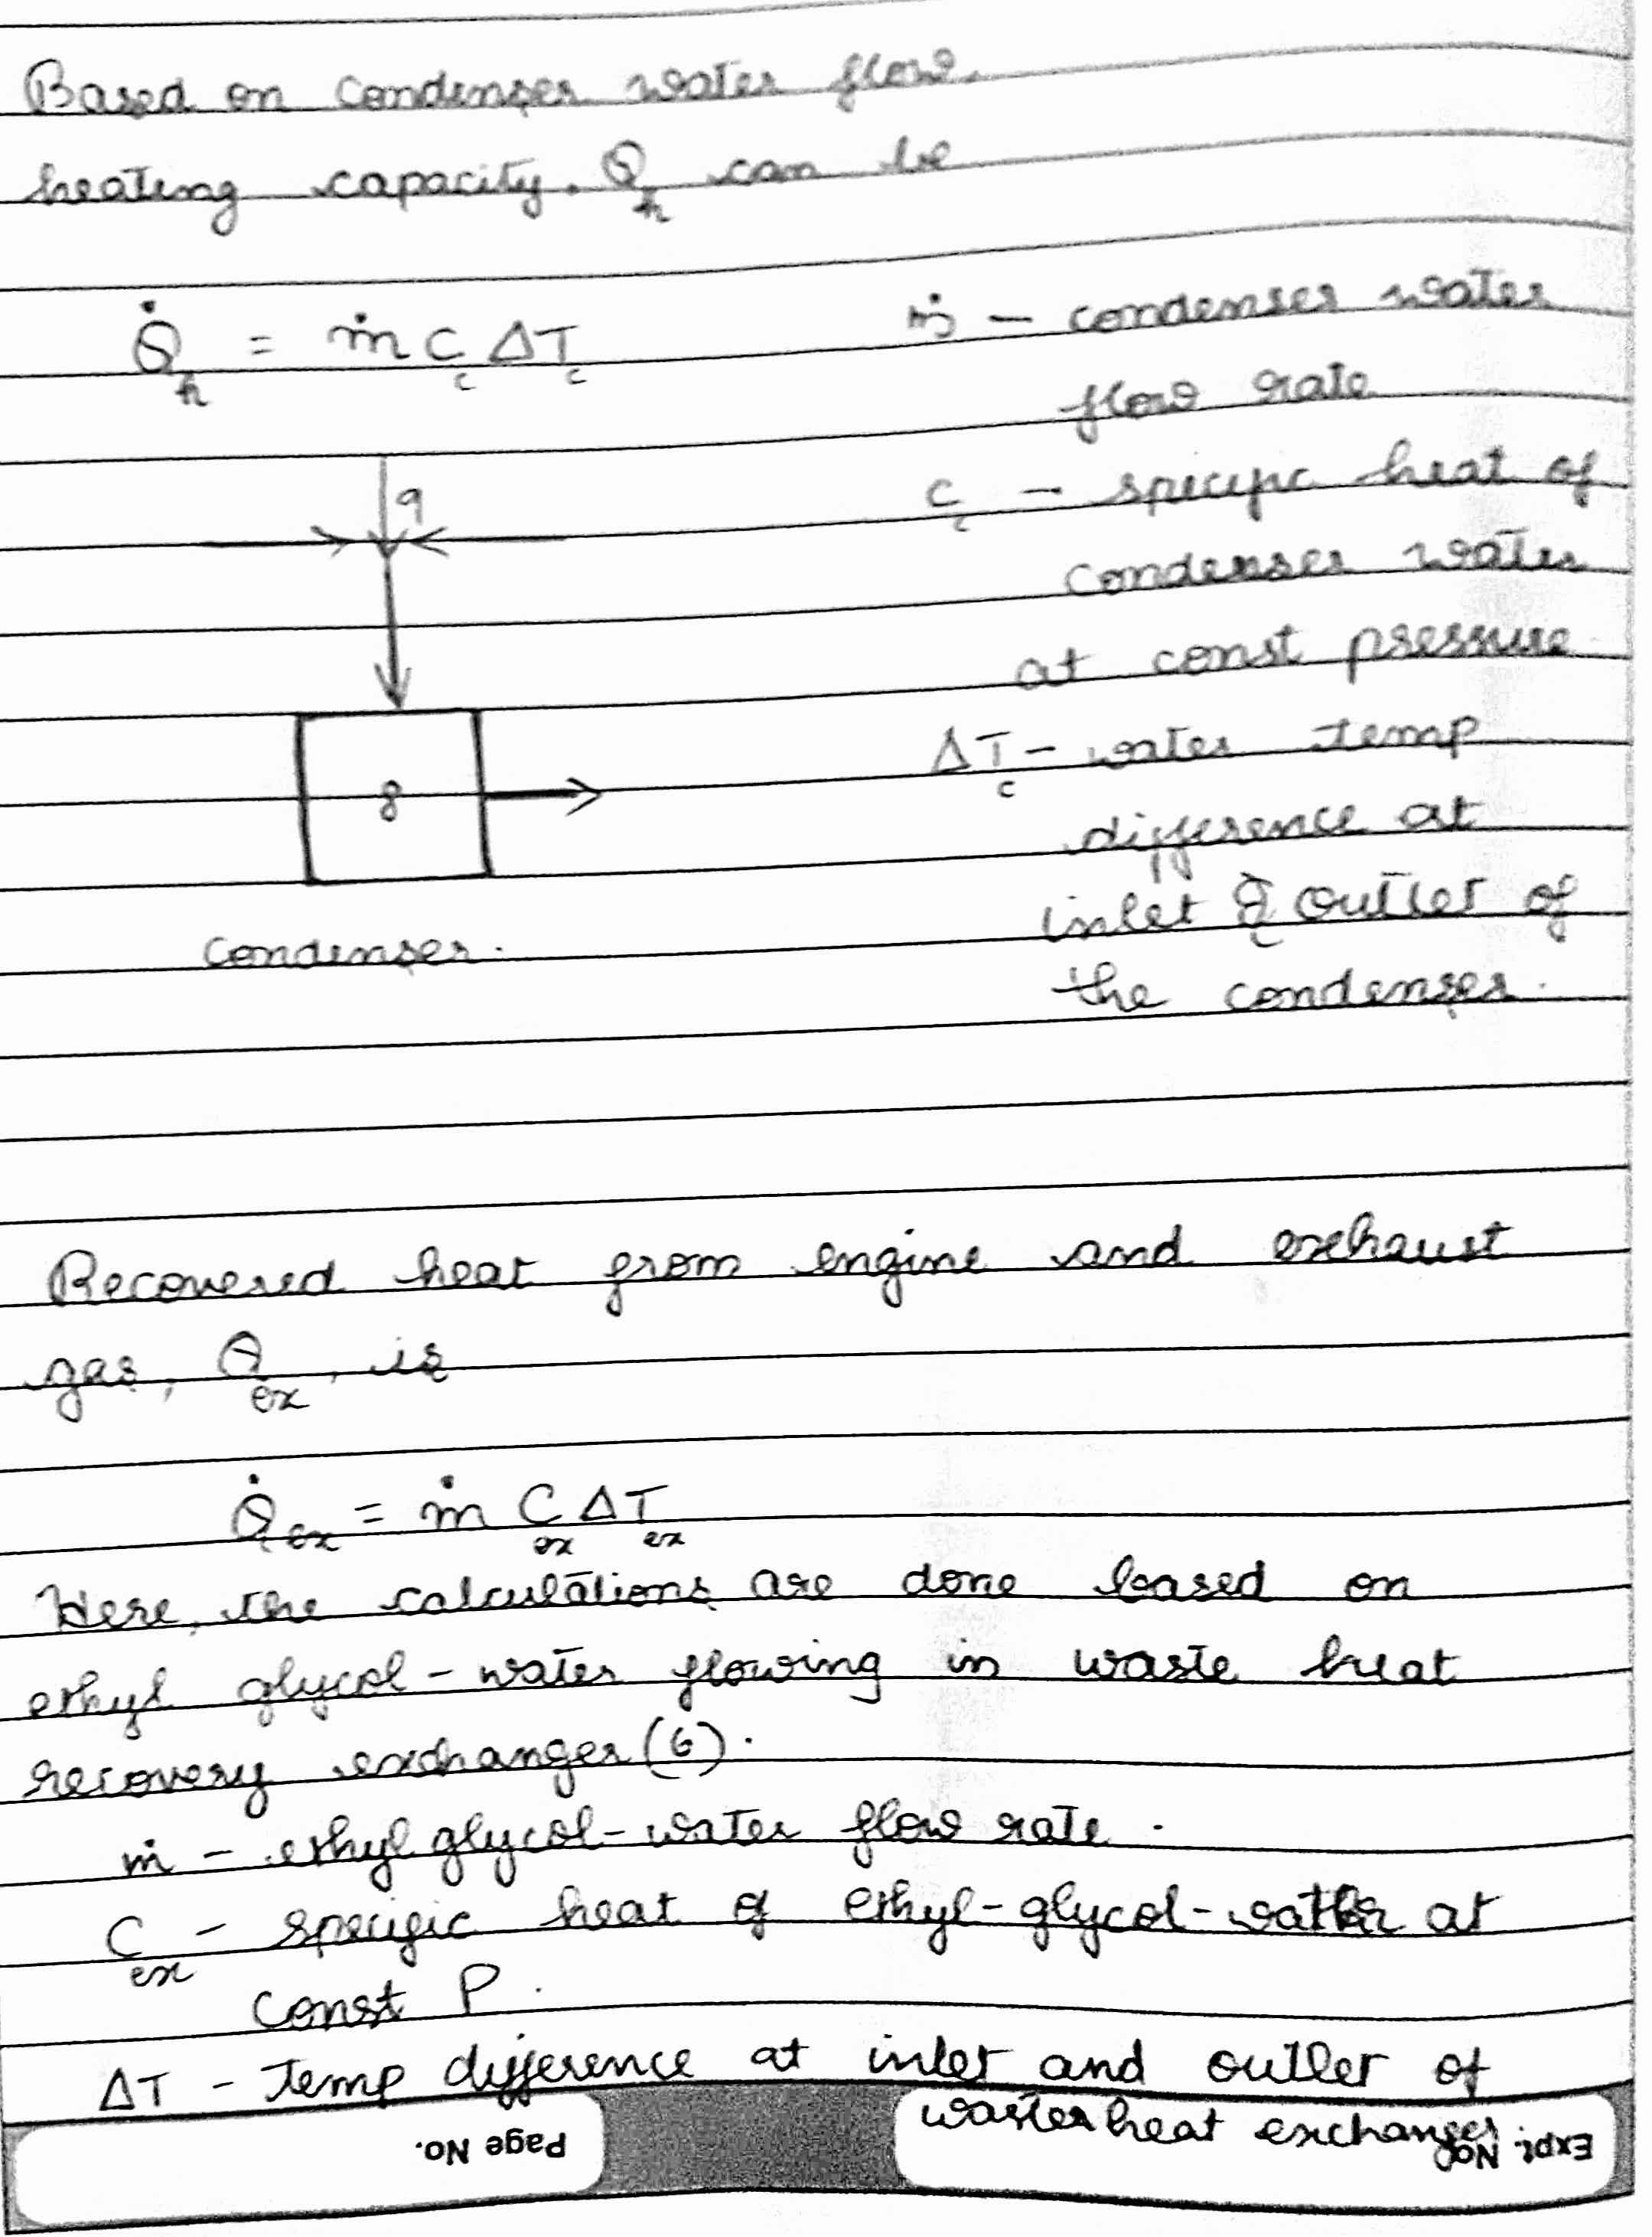 Based on condenser water flow.
heating capacity. Q_h can be
Q̇_h = ṁ C_c ΔT_c
ṁ – condenser water
flow rate
C_c – specific heat of
condenser water
at const pressure
ΔT_c – water temp
difference at
inlet & outlet of
the condenser.
9
8
condenser.
Recovered heat from engine and exhaust
gas, Q_ex, is
Q̇_ex = ṁ C_ex ΔT_ex
Here, the calculations are done based on
ethyl glycol - water flowing in waste heat
recovery exchanger (6).
ṁ – ethyl glycol - water flow rate.
C_ex – specific heat of ethyl-glycol-water at
const P.
ΔT – Temp difference at inlet and outlet of
waster heat exchanger.
Page No.
Expt. No.